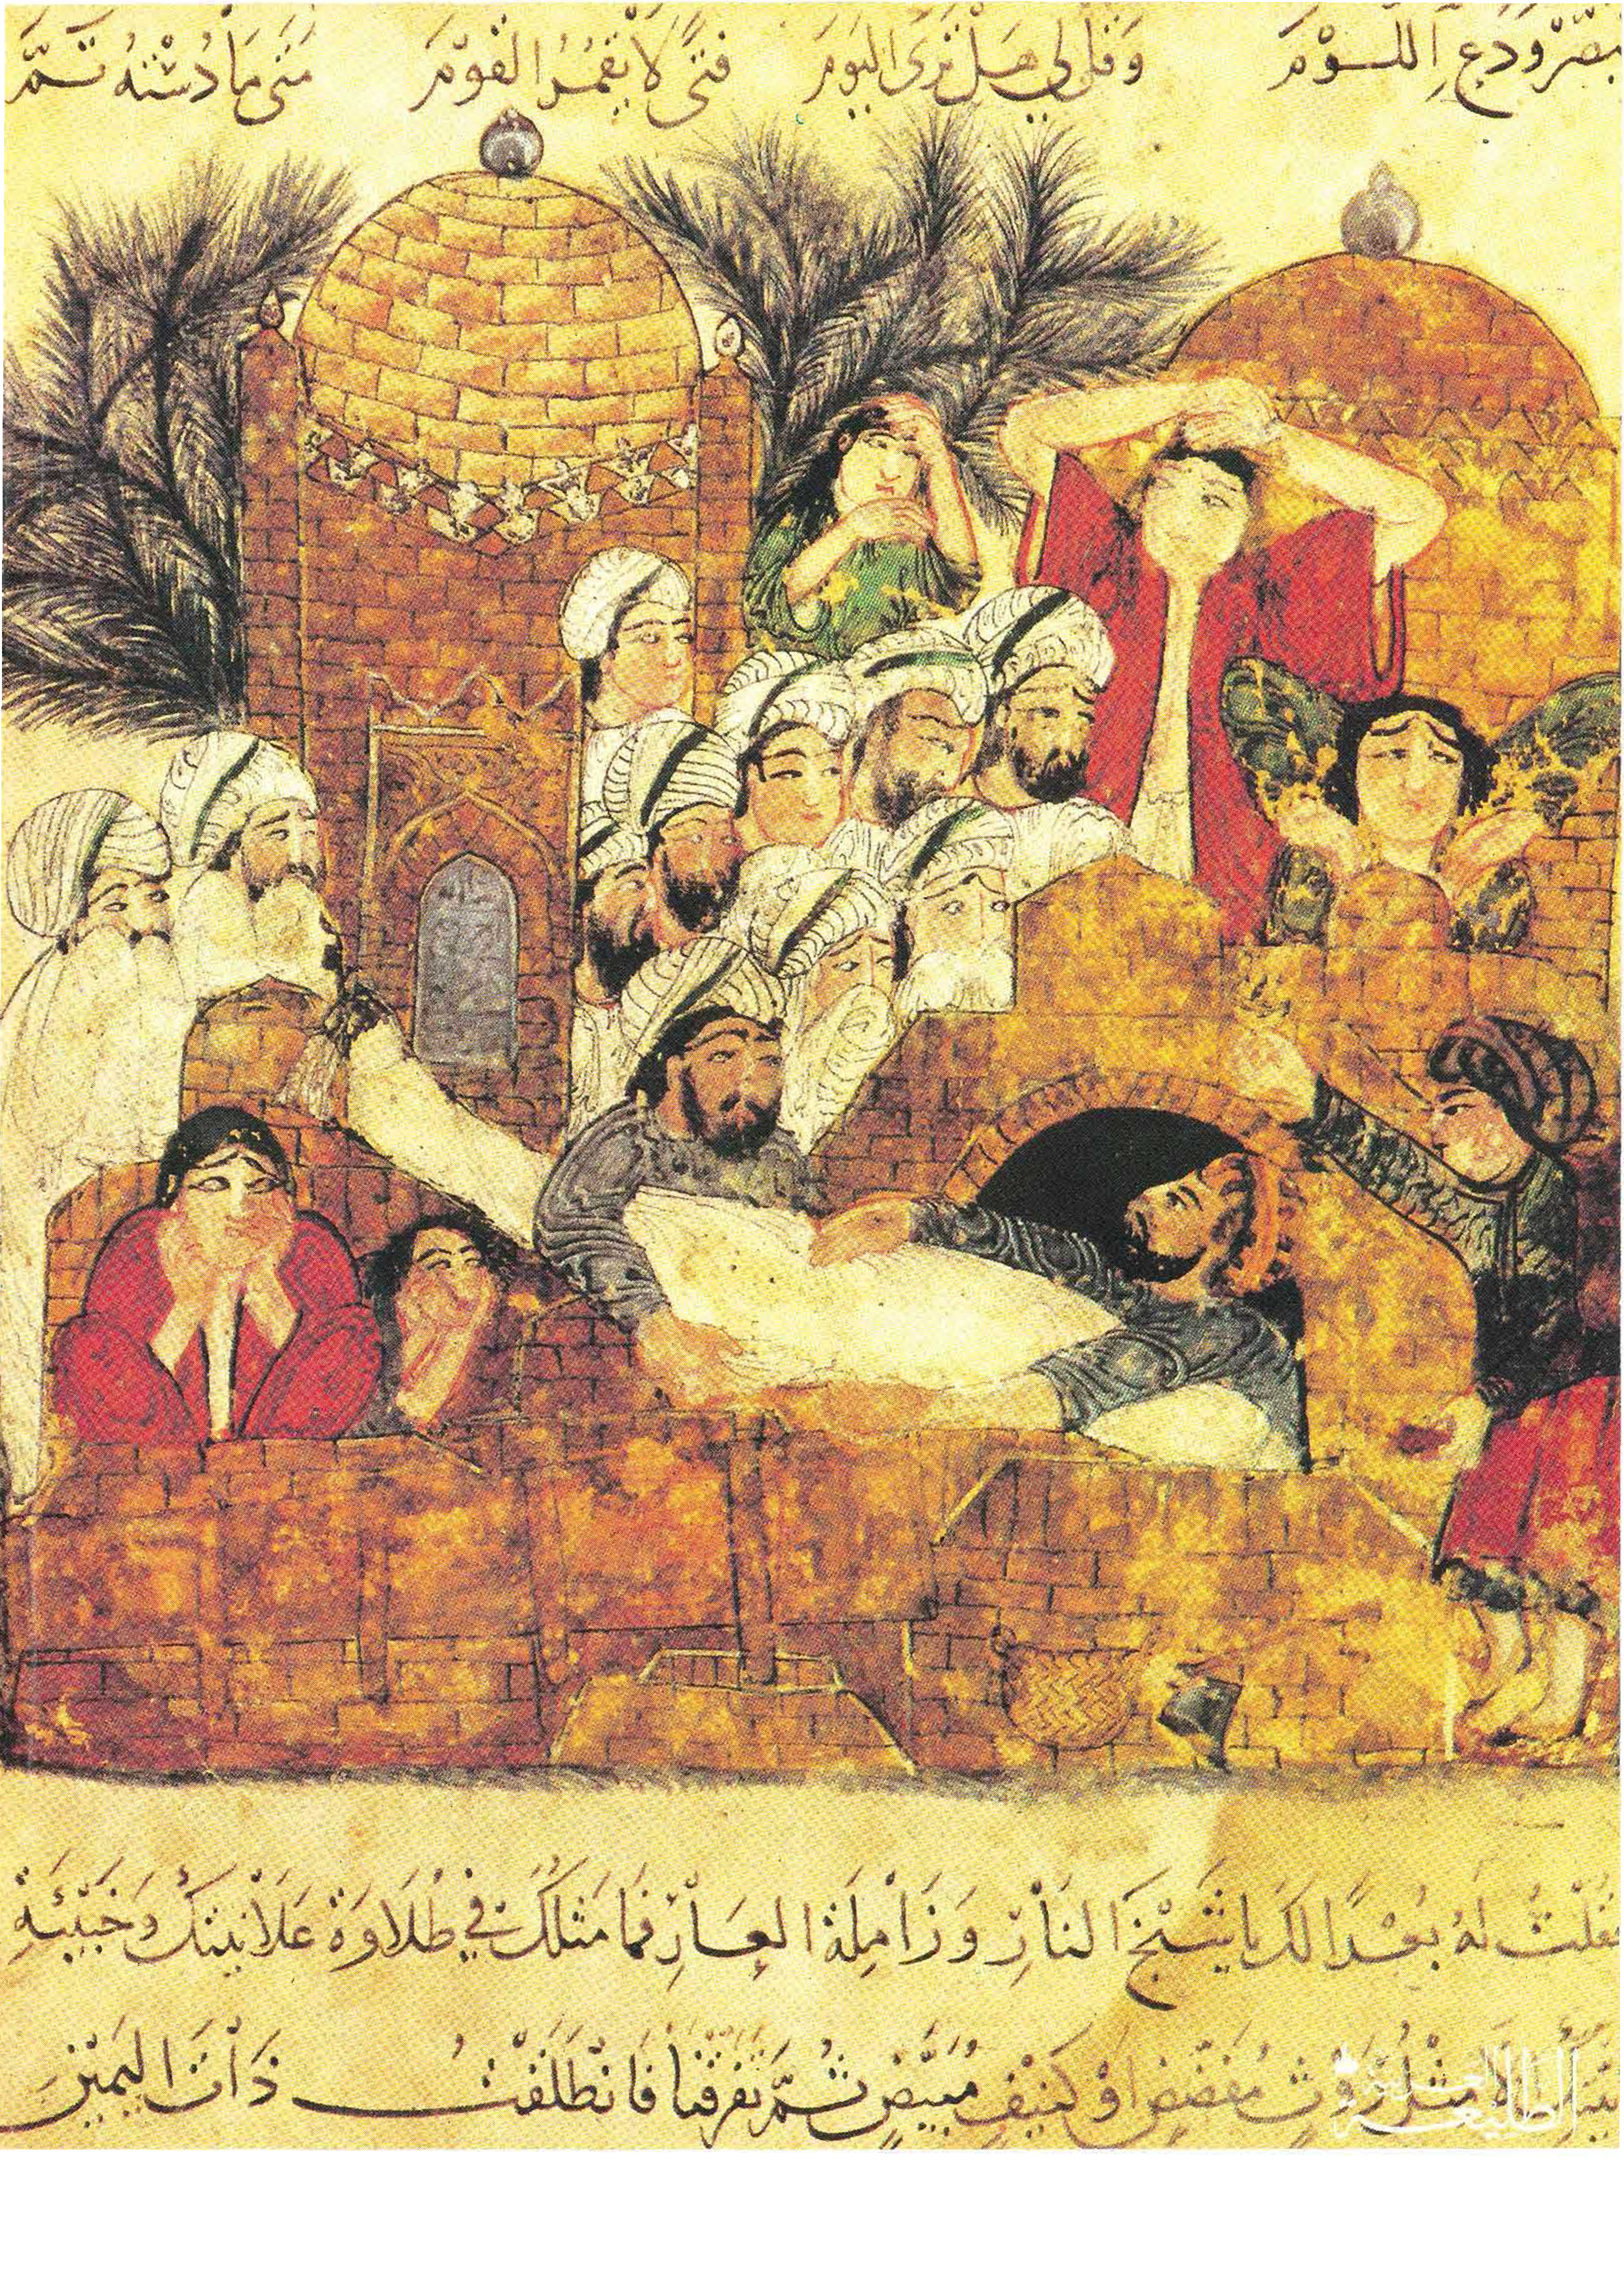 تبصّر ودع اللوم وقل لي هل ترى اليوم فتى لا يقمر القوم متى ما دسته تم
فقلت له بعدا لك يا شيخ النار وزاملة العار فما مثلك في طلاوة علانيتك وخبيئة
نيتك إلا مثل روث مفضض أو كنيف مبيض ثم تفرقنا فانطلقت ذات اليمين
الطليعة